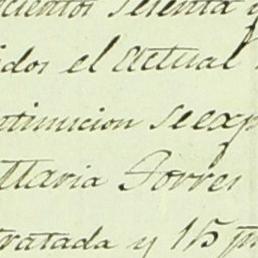 cientos setenta y
idos el Actual
ntinuicion se exp
Maria Torres
tratada y 15 p